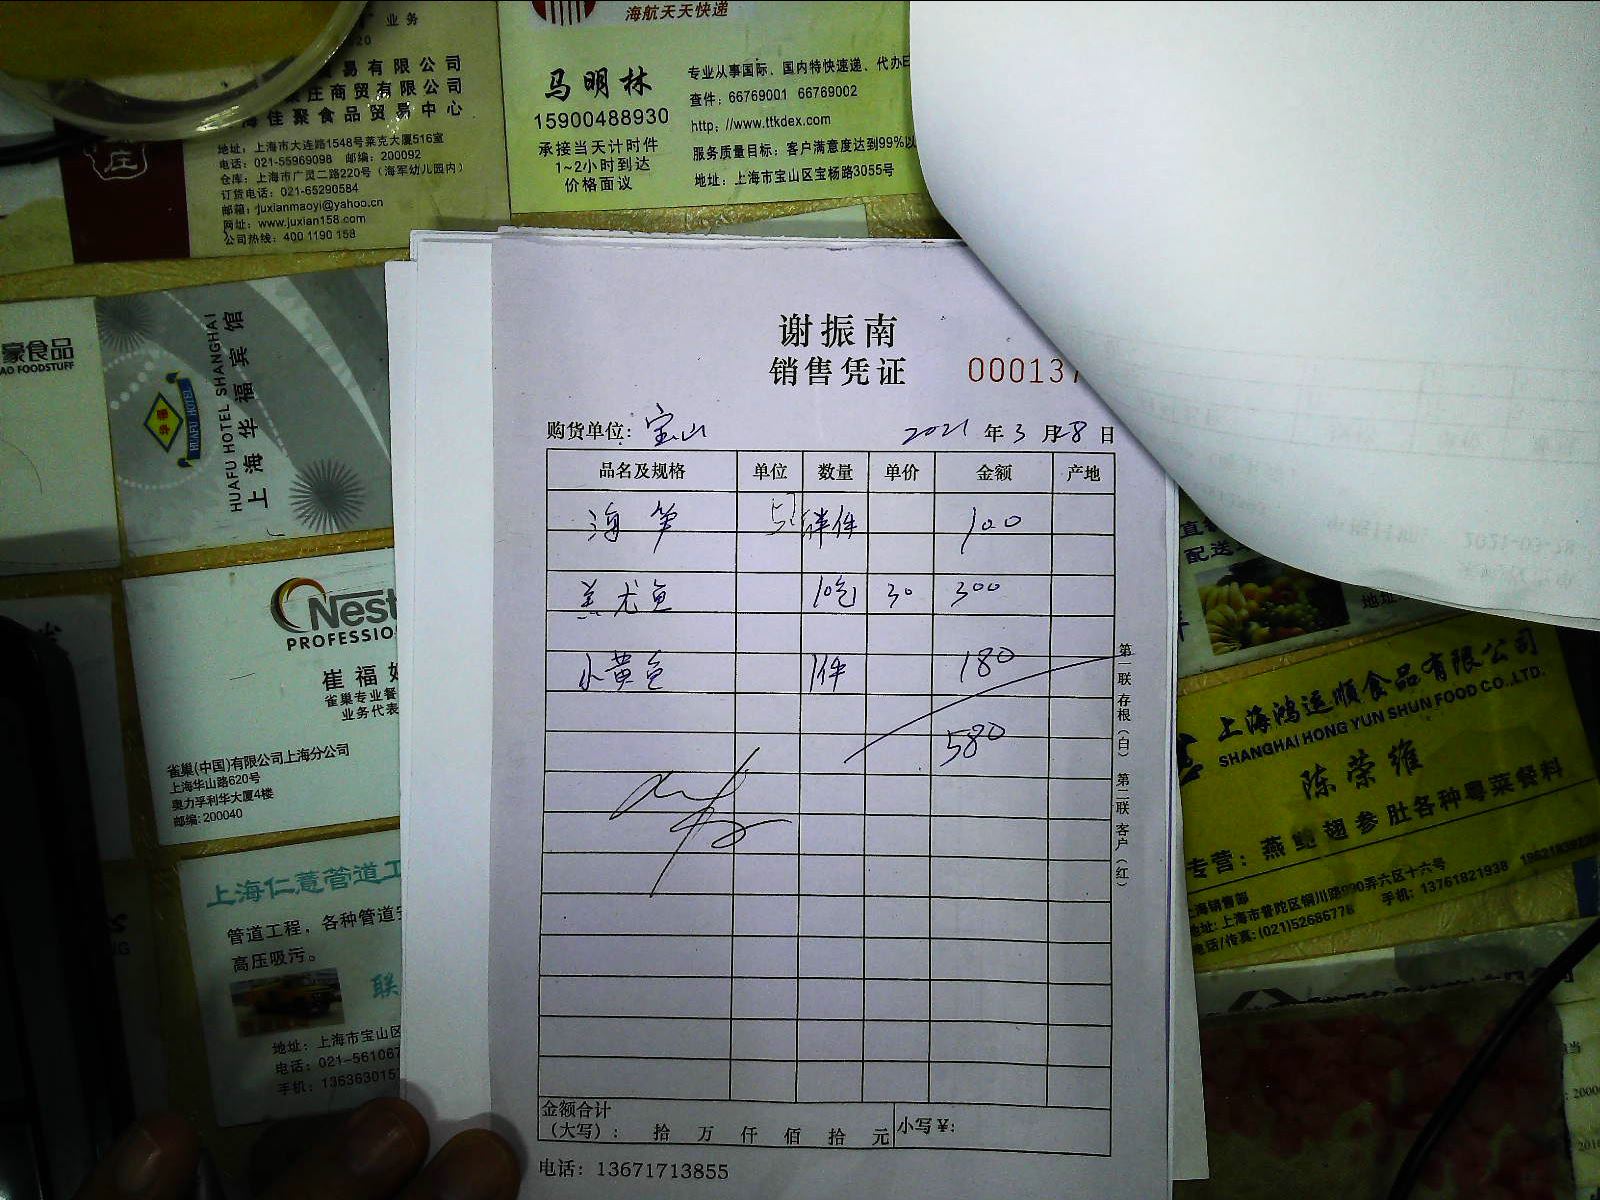 业务
易有限公司
庄商贸有限公司
海佳聚食品贸易中心
地址：上海市大连路1548号莱克大厦516室
电话：021-55969098 邮编：200092
仓库：上海市广灵二路220号（海军幼儿园内）
订货电话：021-65290584
邮箱：juxianmaoyi@yahoo.cn
网址：www.juxian158.com
公司热线：400 1190 158
庄
海航天天快递
马明林
15900488930
承接当天计时件
1~2小时到达
价格面议
专业从事国际、国内特快速递、代办
查件：66769001 66769002
http：//www.ttkdex.com
服务质量目标：客户满意度达到99%以
地址：上海市宝山区宝杨路3055号
豪食品
AO FOODSTUFF
华福
HUAFU HOTEL
HUAFU HOTEL SHANGHAI
上海华福宾馆
Nest
PROFESSIO
崔福
雀巢专业餐
业务代表
雀巢(中国)有限公司上海分公司
上海华山路620号
奥力孚利华大厦4楼
邮编: 200040
上海仁薏管道工
管道工程，各种管道
高压吸污。
联
地址：上海市宝山区
电话：021-56106
手机：136363015
谢振南
销售凭证 000137
购货单位：宝山 2021 年 3 月 28 日
品名及规格 单位 数量 单价 金额 产地
海笋 半件 100
羔尤鱼 10包 30 300
小黄鱼 1件 180
580
第一联 存根（白） 第二联 客户（红）
金额合计
（大写）： 拾 万 仟 佰 拾 元 小写￥：
电话：13671713855
直
配送
地址
上海鸿运顺食品有限公司
SHANGHAI HONG YUN SHUN FOOD CO.,LTD.
陈荣维
专营：燕鲍翅参肚各种粤菜餐料
上海销售部
地址: 上海市普陀区铜川路990弄六区十六号
电话/传真: (021)52686778 手机：13761821938